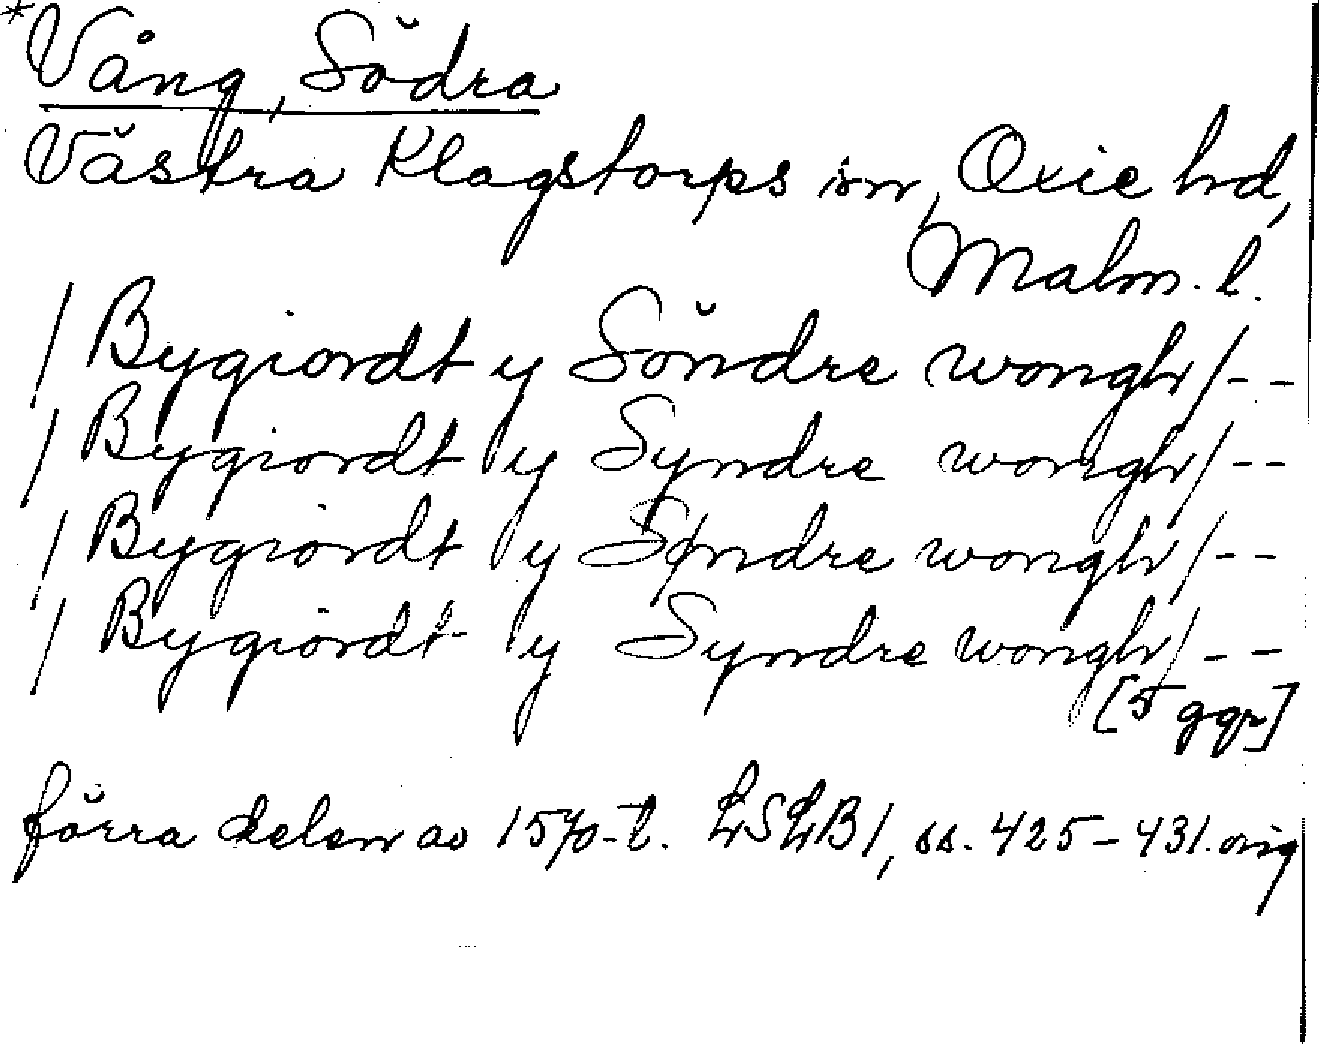 *Vång, Södra
Västra Klagstorps sn, Oxie hd,
Malm. l.
/ Bygiordt y Söndre wongh /--
/ Bygiordt y Syndre wongh /--
/ Bygiordt y Søndre wongh /--
/ Bygiordt y Syndre wongh /--
[5 ggr]
förra delen av 1570-t. LSLB1, ss. 425-431. orig